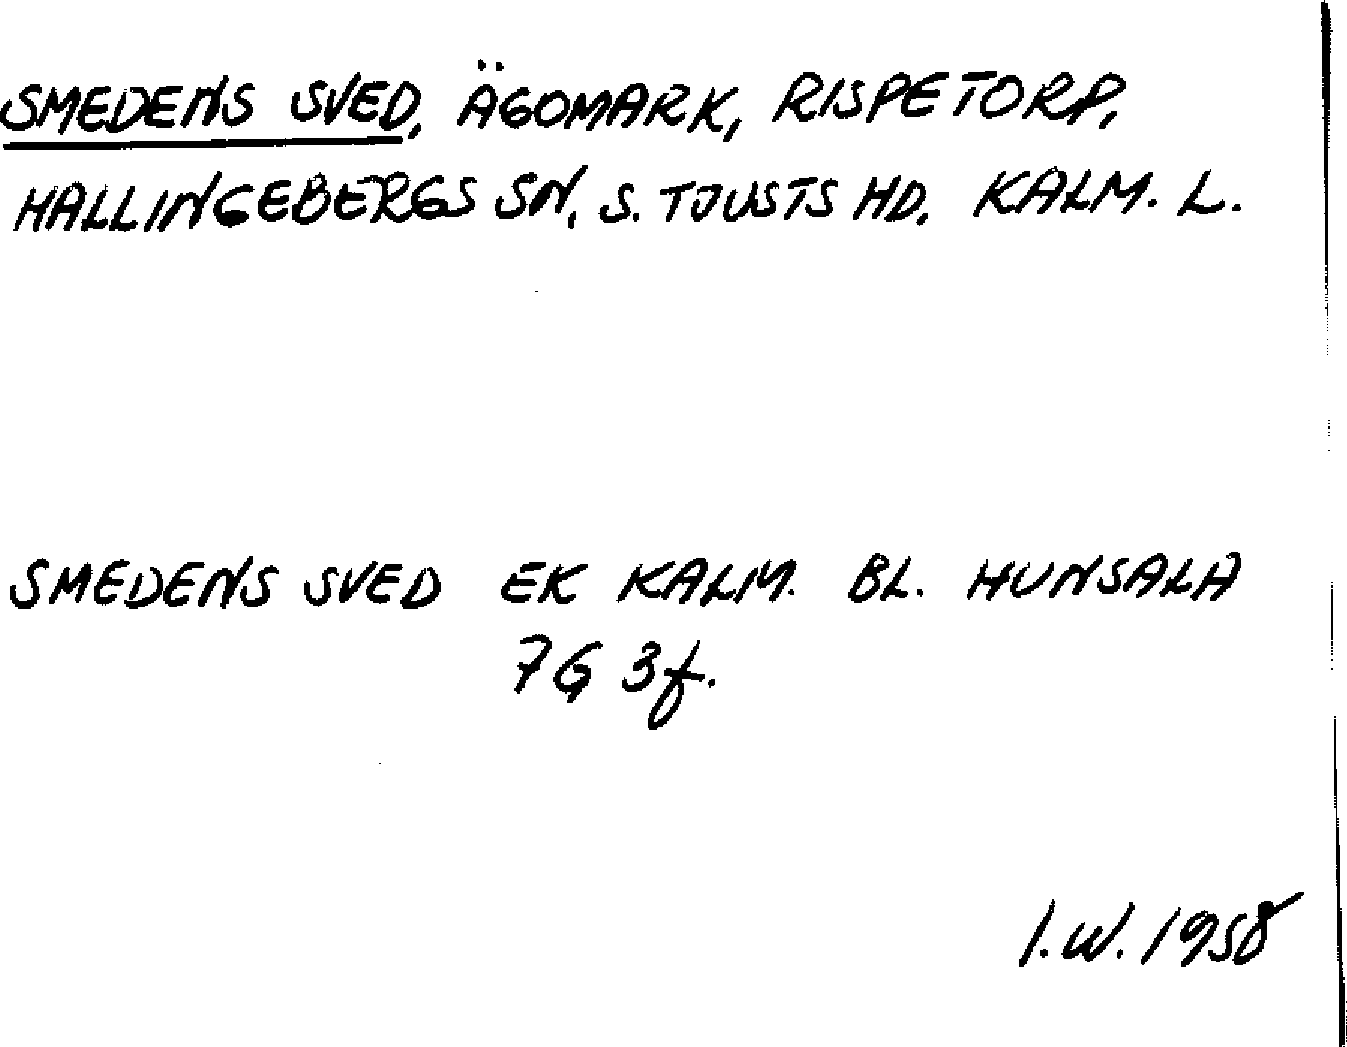 SMEDENS SVED, ÄGOMARK, RISPETORP,
HALLINGEBERGS SN, S. TJUSTS HD. KALM. L.
SMEDENS SVED EK KALM. BL. HUNSALA
7G 3f.
I.W. 1958